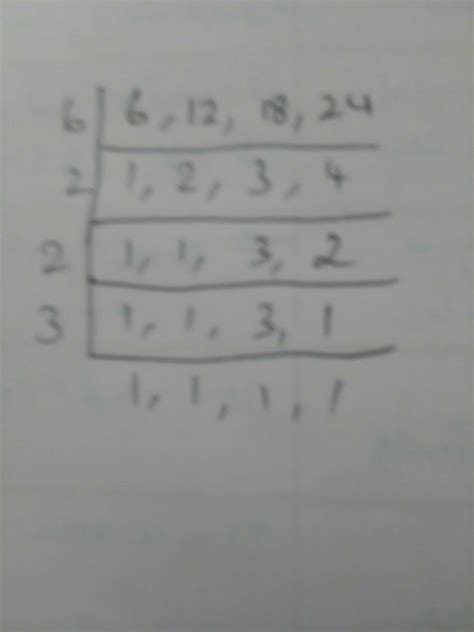 6 | 6, 12, 18, 24
2 | 1, 2, 3, 4
2 | 1, 1, 3, 2
3 | 1, 1, 3, 1
1, 1, 1, 1